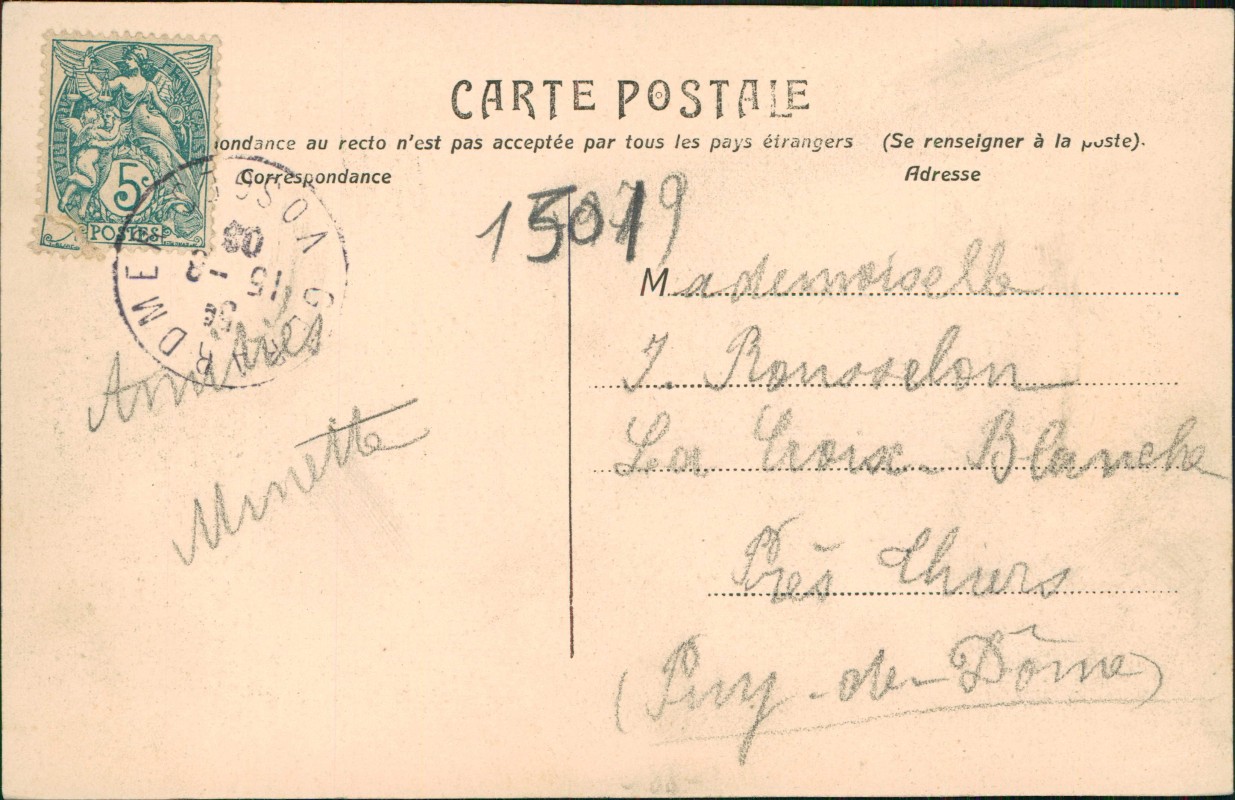 CARTE POSTALE
ondance au recto n'est pas acceptée par tous les pays étrangers (Se renseigner à la poste).
Correspondance
Adresse
5c
POSTES
GÉRARDMER VOSGES
15
Amitiés
Minette
Mademoiselle
J. Rousselon
La Croix-Blanche
Près Thiers
(Puy-de-Dôme)